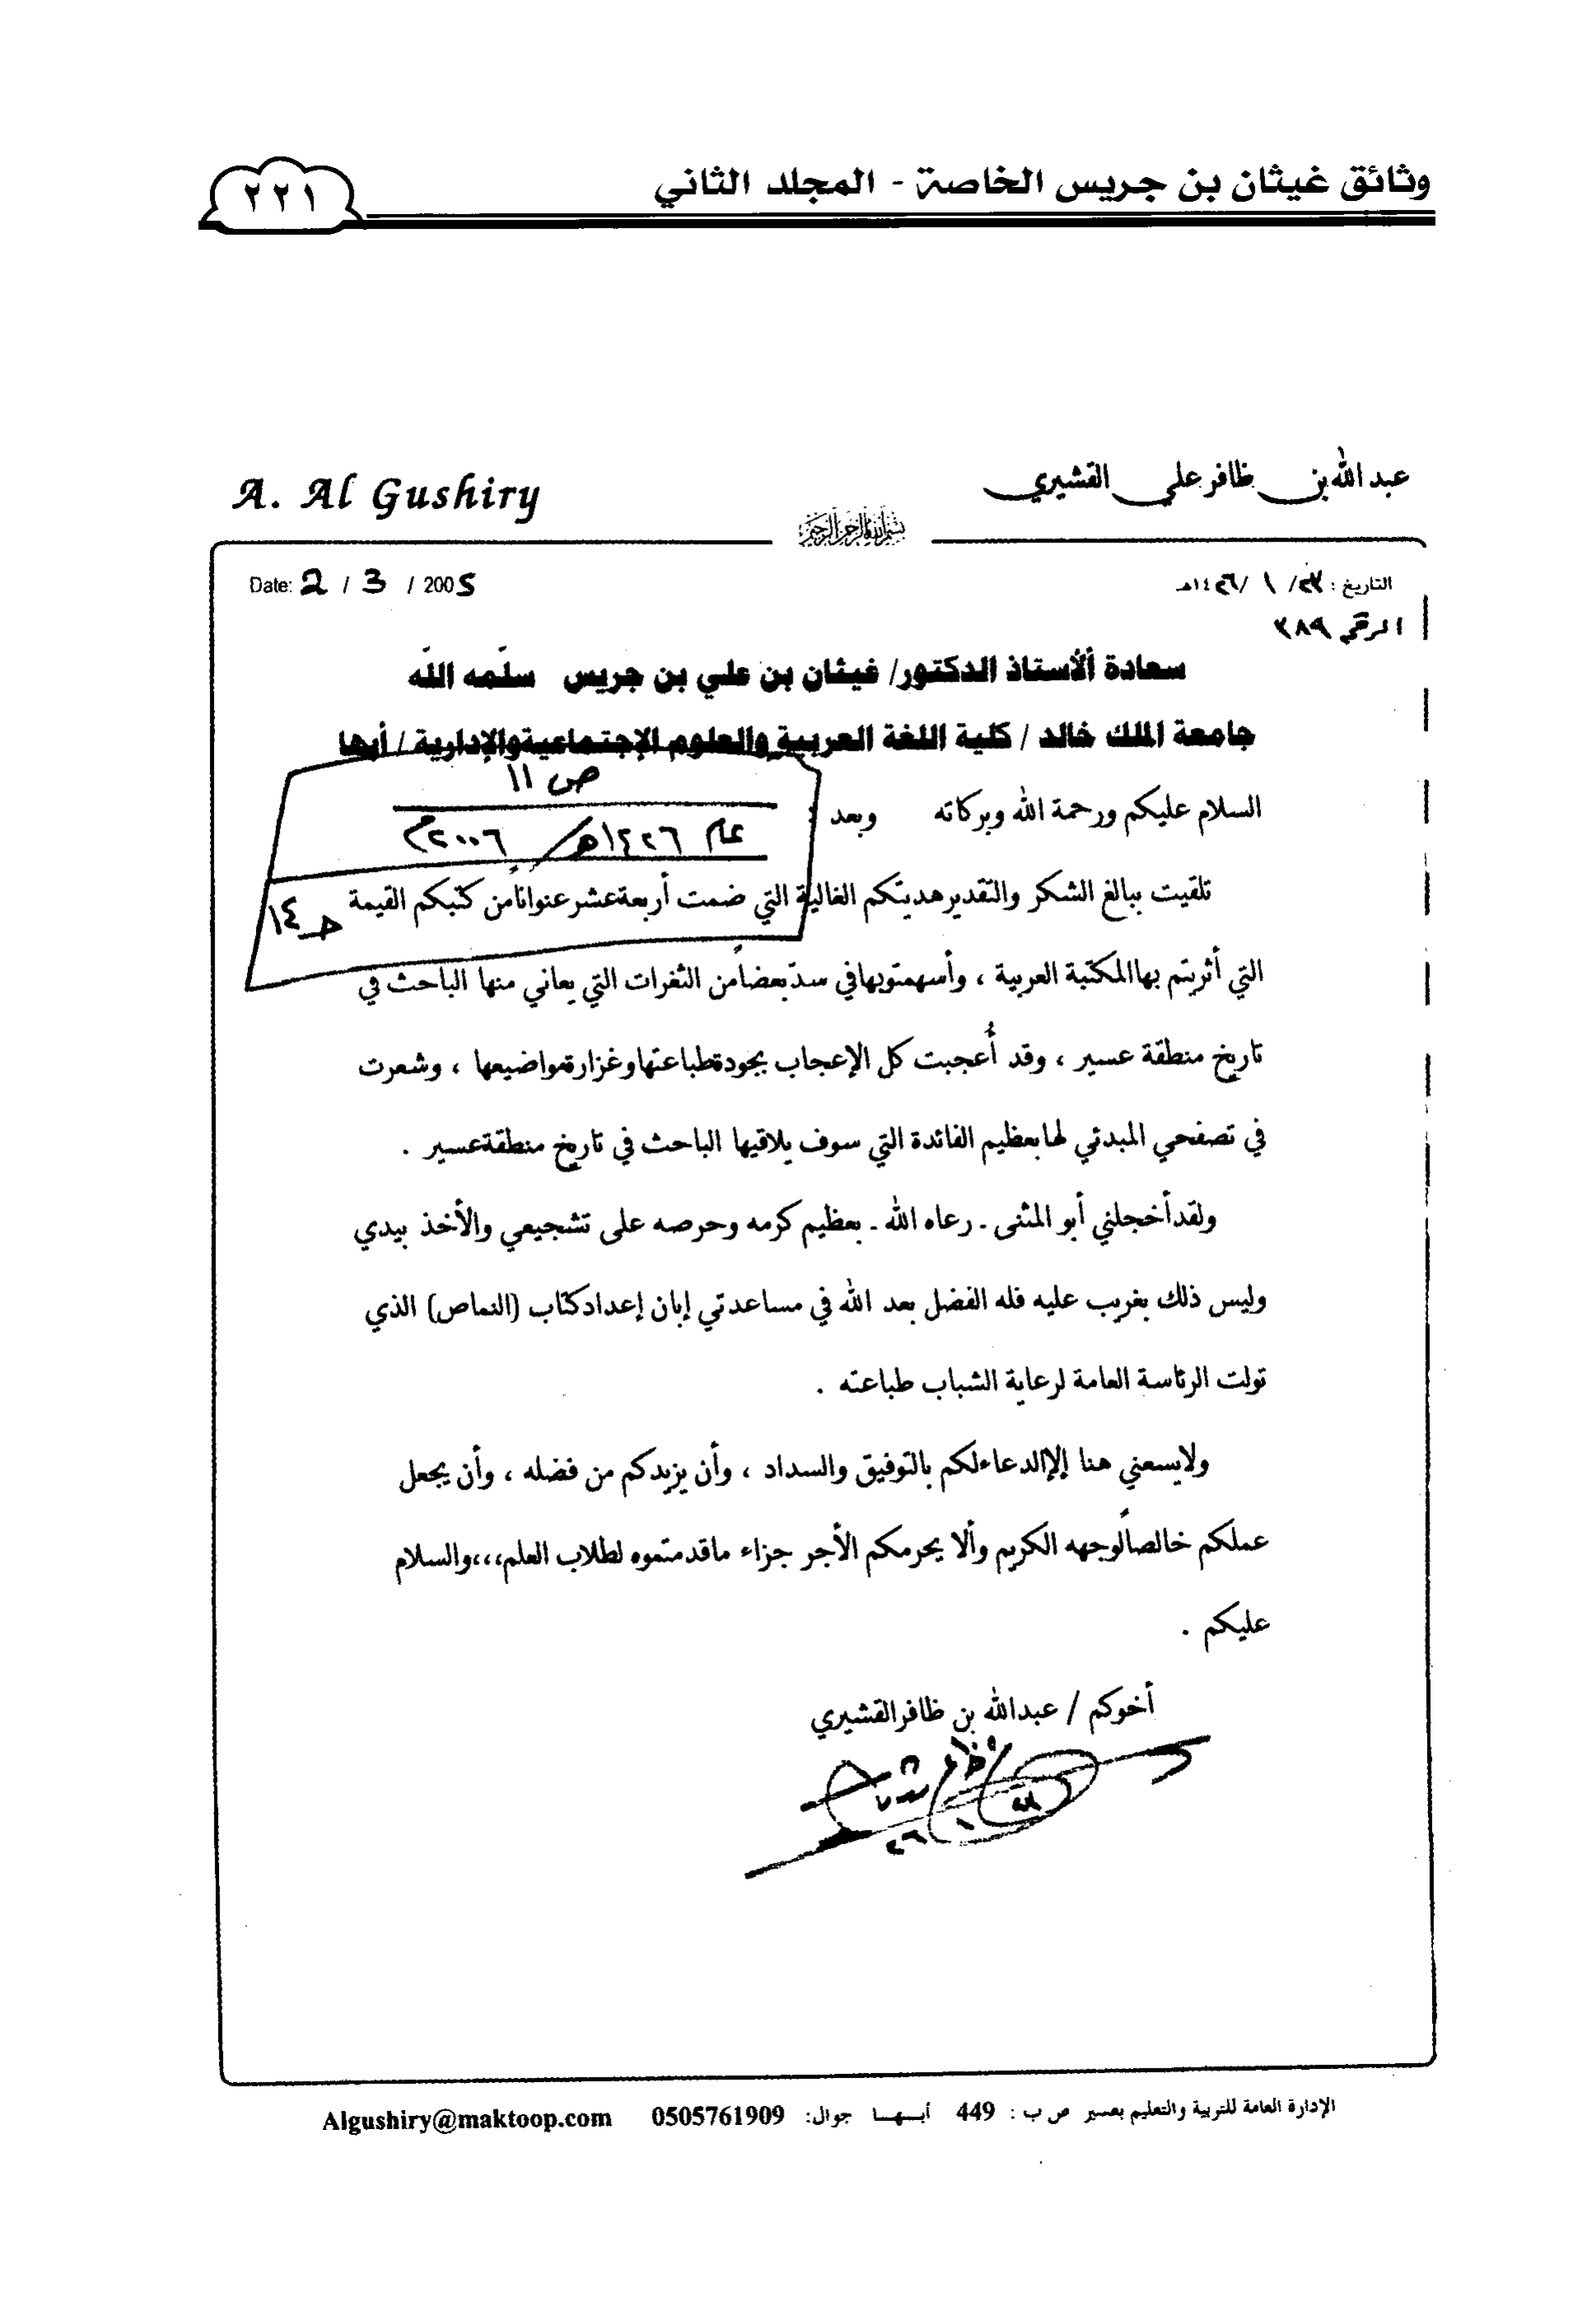 وثائق غيثان بن جريس الخاصة - المجلد الثاني
٢٢١
عبد الله بن ظافر علي القشيري
A. Al Gushiry
بسم الله الرحمن الرحيم
التاريخ : ٢٧/ ١ /١٤٢٦هـ
Date: 2 / 3 / 2005
الرقم ٣٨٩
سعادة ألأستاذ الدكتور/ غيثان بن علي بن جريس سلّمه اللّه
جامعة الملك خالد / كلية اللغة العربية والعلوم الإجتماعيةوالإدارية / أبها
ص ١١
السلام عليكم ورحمة الله وبركاته وبعد :
عام ١٤٢٦هـ/ ٢٠٠٦م
تلقيت ببالغ الشكر والتقديرهديتكم الغالية التي ضمت أربعةعشرعنواناًمن كتبكم القيمة
حـ ١٤
التي أثريتم بهاالمكتبة العربية ، وأسهمتوبهافي سدّبعضاًمن الثغرات التي يعاني منها الباحث في
تاريخ منطقة عسير ، وقد أُعجبت كل الإعجاب بجودةطباعتهاوغزارةمواضيعها ، وشعرت
في تصفحي المبدئي لهابعظيم الفائدة التي سوف يلاقيها الباحث في تاريخ منطقةعسير .
ولقدأخجلني أبو المثنى ـ رعاه الله ـ بعظيم كرمه وحرصه على تشجيعي والأخذ بيدي
وليس ذلك بغريب عليه فله الفضل بعد الله في مساعدتي إبان إعدادكتاب (النماص) الذي
تولت الرئاسة العامة لرعاية الشباب طباعته .
ولايسعني هنا إلاالدعاءلكم بالتوفيق والسداد ، وأن يزيدكم من فضله ، وأن يجعل
عملكم خالصاًلوجهه الكريم وألا يحرمكم الأجر جزاء ماقدمتموه لطلاب العلم،،،والسلام
عليكم .
أخوكم / عبدالله بن ظافرالقشيري
الإدارة العامة للتربية والتعليم بعسير ص ب : 449 أبـــهـــا جوال: 0505761909 Algushiry@maktoop.com